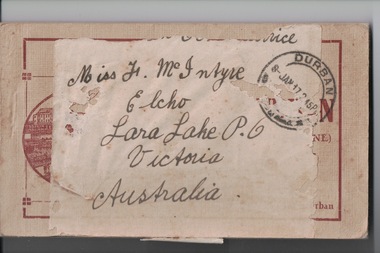 Service
Miss H. McIntyre
Elcho
Lara Lake P.O
Victoria
Australia.
DURBAN
8-JAN 17
N
NE)
rban